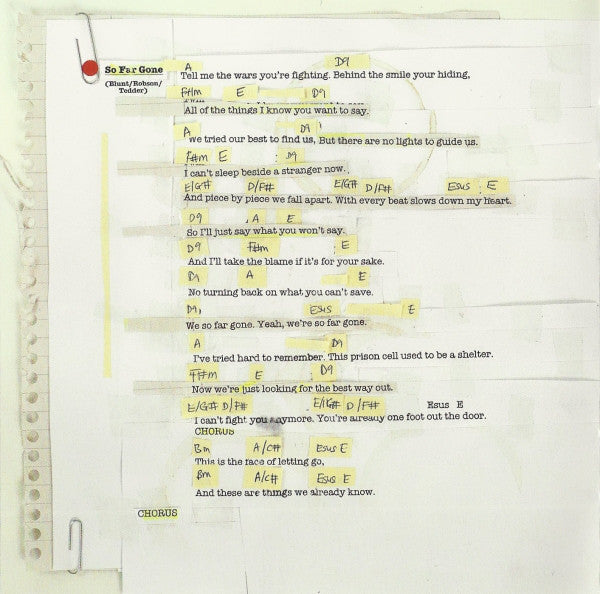 So Far Gone
(Blunt/Robson/
Tedder)
A D9
Tell me the wars you're fighting. Behind the smile your hiding,
F#m E D9
All of the things I know you want to say.
A D9
we tried our best to find us, But there are no lights to guide us.
F#m E D9
I can't sleep beside a stranger now.
E/G# D/F# E/G# D/F# Esus E
And piece by piece we fall apart. With every beat slows down my heart.
D9 A E
So I'll just say what you won't say.
D9 F#m E
And I'll take the blame if it's for your sake.
D9 A E
No turning back on what you can't save.
D9 Esus E
We so far gone. Yeah, we're so far gone.
A D9
I've tried hard to remember. This prison cell used to be a shelter.
F#m E D9
Now we're just looking for the best way out.
E/G# D/F# E/G# D/F# Esus E
I can't fight you anymore. You're already one foot out the door.
CHORUS
Bm A/C# Esus E
This is the race of letting go,
Bm A/C# Esus E
And these are things we already know.
CHORUS